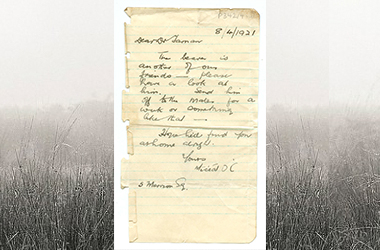 8/4/1921
Dear Dr
The bearer is
another of our
friends — please
have a look at
him. Send him
off to the Mater for a
week or something
like that —.
Hope he'll find you
at home
Yours